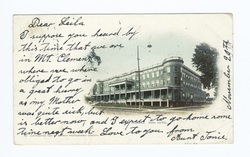 Dear Leila
I suppose you heard by
this time that we are
in Mt. Clemens
where we were
obliged to go in
a great hurry
as my Mother
was quite sick, but
is better now, and I expect to go home some
time next week. Love to you from
Aunt Tonie.
November 28th